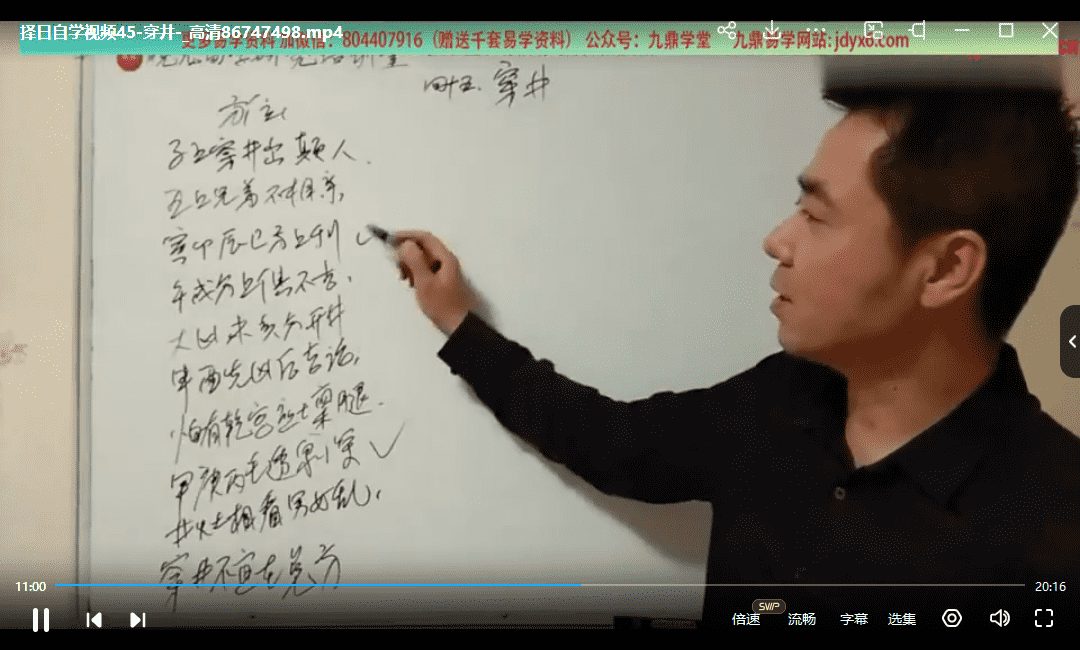 择日自学视频45-穿井-_高清86747498.mp4
更多易学资料加微信：804407916（赠送千套易学资料）公众号：九鼎学堂 九鼎易学网站:jdyx6.com
四十五. 穿井
方位
子上穿井出颠人.
丑上兄弟不相亲,
寅卯辰巳方上利
午戌方上俱不吉,
大凶未亥方开井
申酉先凶后吉论,
怕有乾宫 腿.
甲庚丙壬 穿
井灶相看男女乱,
穿井不宜在兑方
11:00
20:16
倍速
SVIP
流畅
字幕
选集